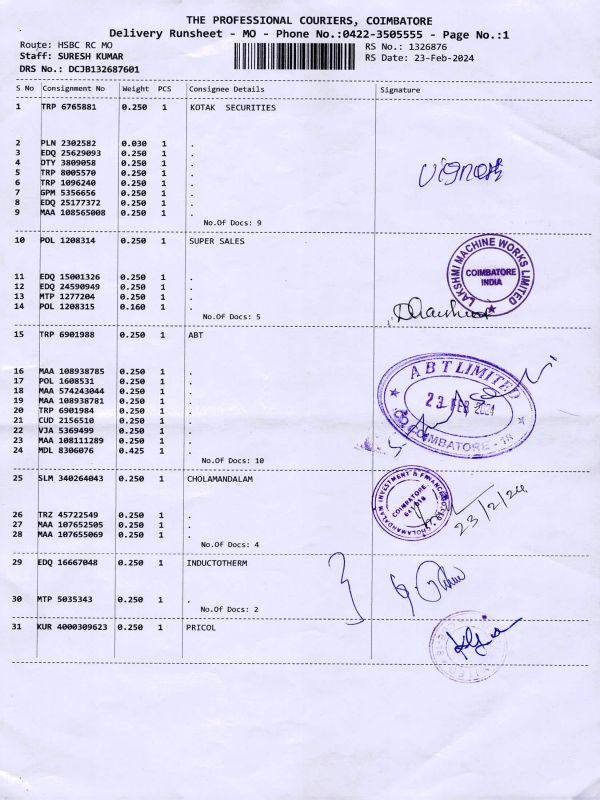 THE PROFESSIONAL COURIERS, COIMBATORE
Delivery Runsheet - MO - Phone No.:0422-3505555 - Page No.:1
Route: HSBC RC MO
RS No.: 1326876
Staff: SURESH KUMAR
RS Date: 23-Feb-2024
DRS No.: DCJB132687601
S No Consignment No Weight PCS Consignee Details Signature
1 TRP 6765881 0.250 1 KOTAK SECURITIES
2 PLN 2302582 0.030 1 .
3 EDQ 25629093 0.250 1 .
4 DTY 3809058 0.250 1 .
5 TRP 8005570 0.250 1 .
6 TRP 1096240 0.250 1 .
7 GPM 5356656 0.250 1 .
8 EDQ 25177372 0.250 1 .
9 MAA 108565008 0.250 1 .
No.Of Docs: 9
10 POL 1208314 0.250 1 SUPER SALES
LAKSHMI MACHINE WORKS LIMITED
COIMBATORE
INDIA
11 EDQ 15001326 0.250 1 .
12 EDQ 24590949 0.250 1 .
13 MTP 1277204 0.250 1 .
14 POL 1208315 0.160 1 .
No.Of Docs: 5
15 TRP 6901988 0.250 1 ABT
ABT LIMITED
23 FEB 2024
COIMBATORE - 18
16 MAA 108938785 0.250 1 .
17 POL 1608531 0.250 1 .
18 MAA 574243044 0.250 1 .
19 MAA 108938781 0.250 1 .
20 TRP 6901984 0.250 1 .
21 CUD 2156510 0.250 1 .
22 VJA 5369499 0.250 1 .
23 MAA 108111289 0.250 1 .
24 MDL 8306076 0.425 1 .
No.Of Docs: 10
25 SLM 340264043 0.250 1 CHOLAMANDALAM
CHOLAMANDALAM INVESTMENT & FINANCE CO. LTD.
COIMBATORE
641 018
23/2/24
26 TRZ 45722549 0.250 1 .
27 MAA 107652505 0.250 1 .
28 MAA 107655069 0.250 1 .
No.Of Docs: 4
29 EDQ 16667048 0.250 1 INDUCTOTHERM
30 MTP 5035343 0.250 1 .
No.Of Docs: 2
31 KUR 4000309623 0.250 1 PRICOL